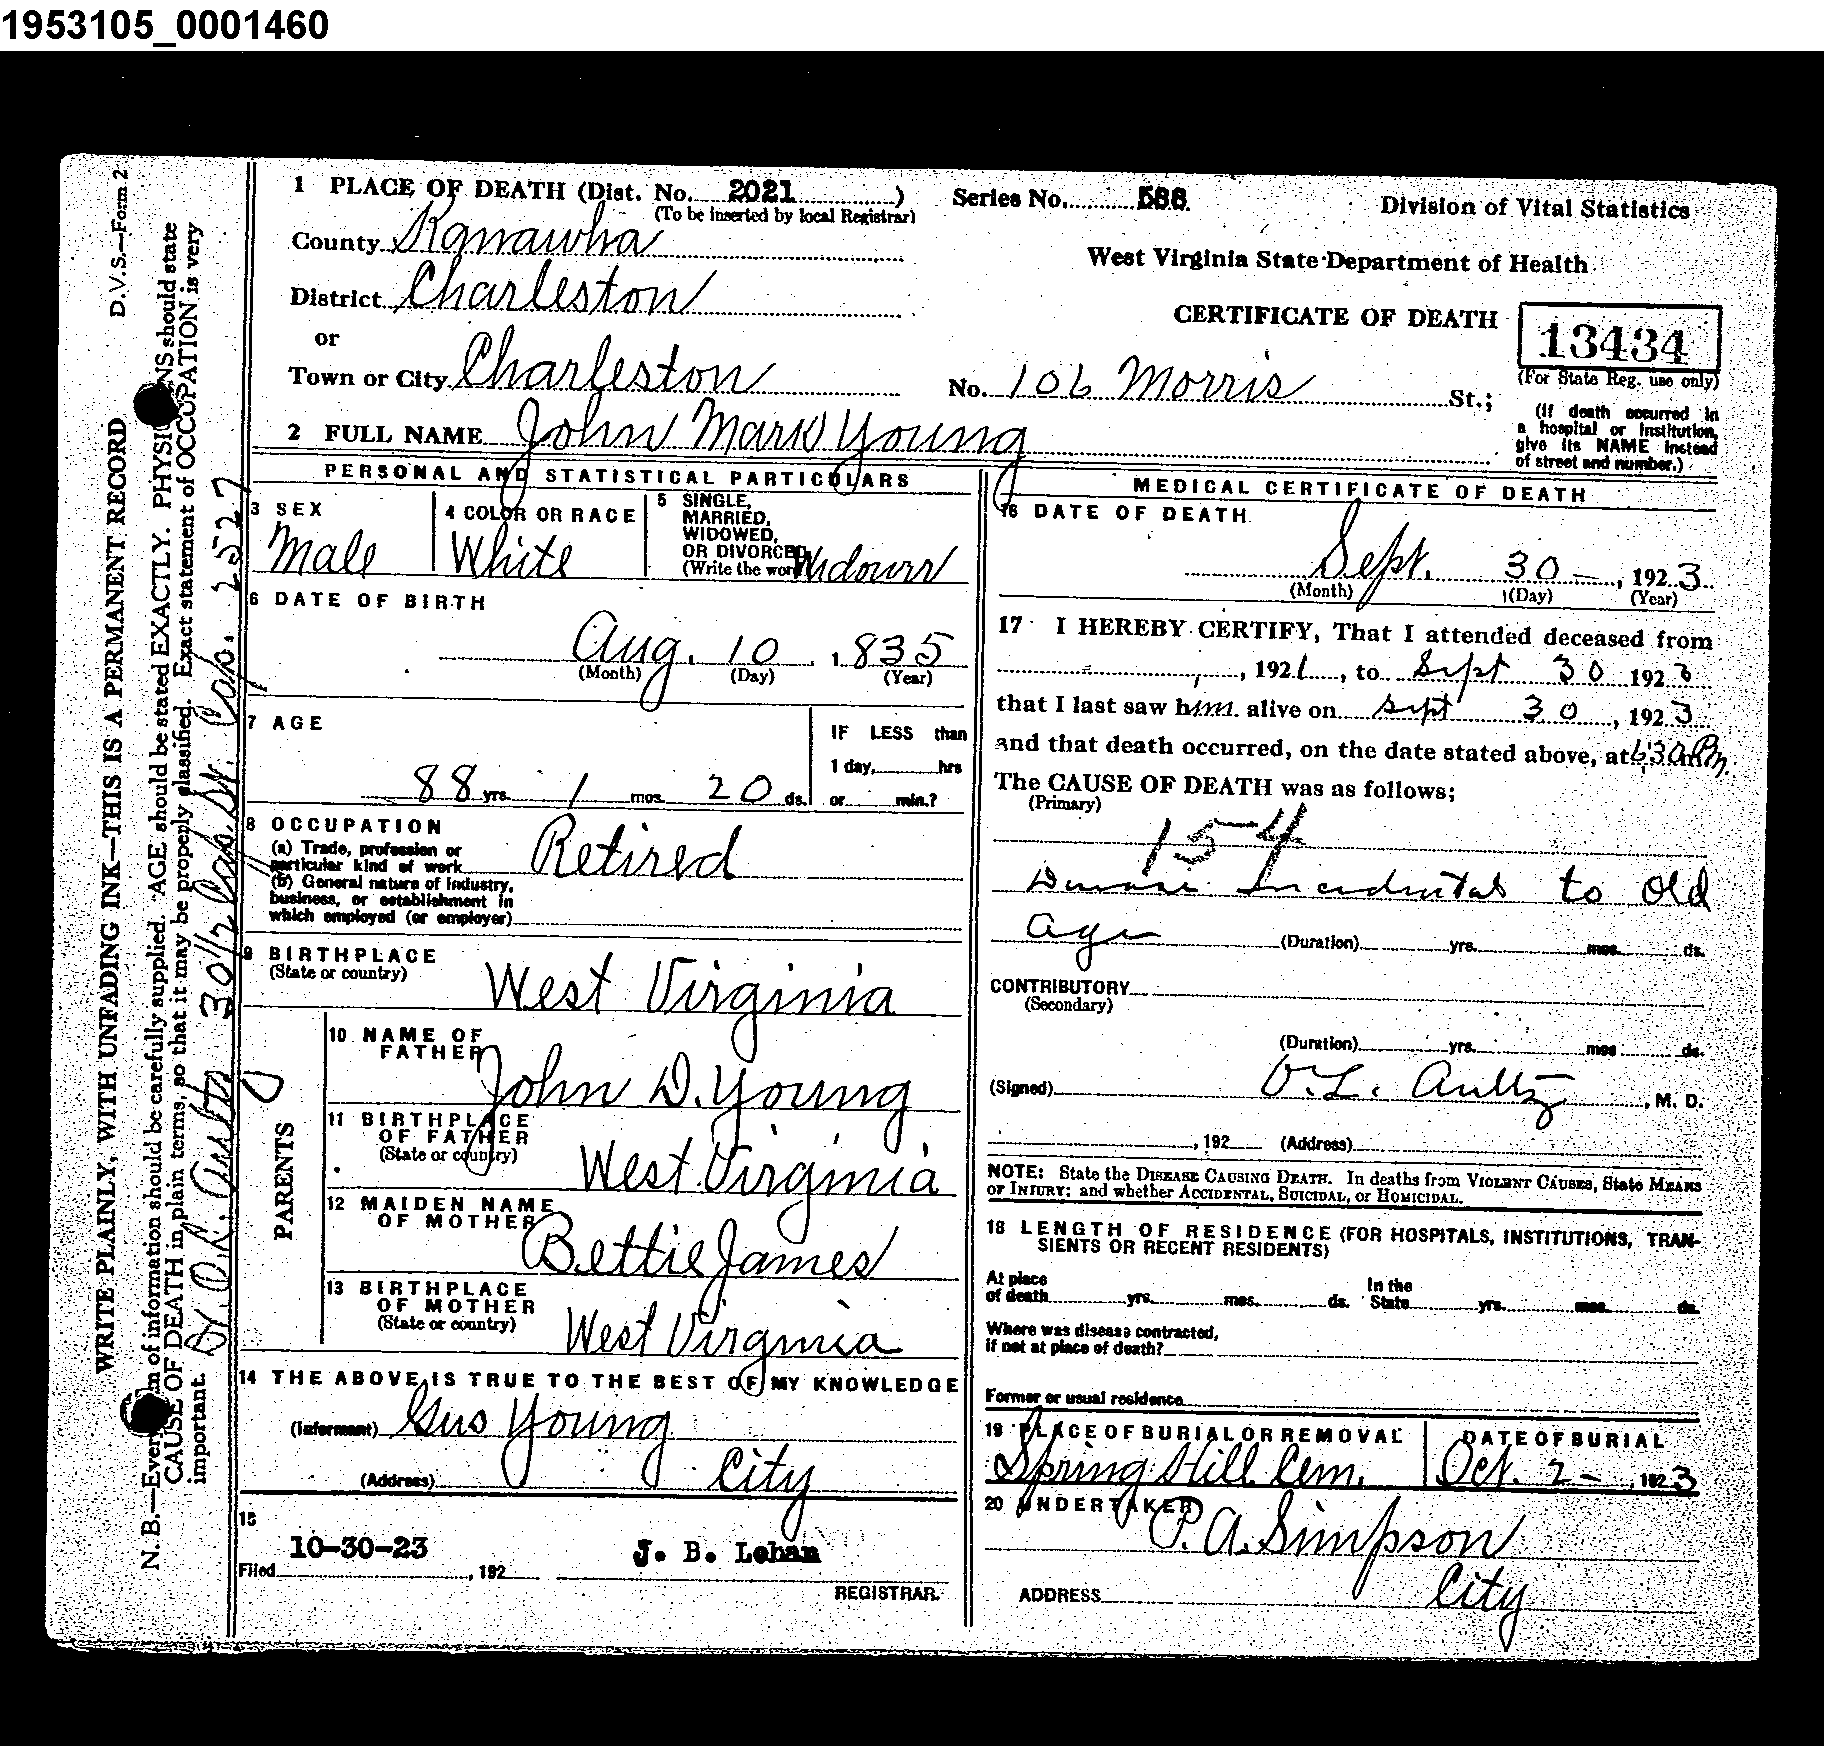 1953105_0001460
1 PLACE OF DEATH (Dist. No. 2021 )
(To be inserted by local Registrar)
Series No. 588
Division of Vital Statistics
County Kanawha
West Virginia State Department of Health
District Charleston
CERTIFICATE OF DEATH
13434
(For State Reg. use only)
or
Town or City Charleston
No. 106 Morris St.;
(If death occurred in
a hospital or institution,
give its NAME instead
of street and number.)
2 FULL NAME John Mark Young
PERSONAL AND STATISTICAL PARTICULARS
3 SEX
Male
4 COLOR OR RACE
White
5 SINGLE,
MARRIED,
WIDOWED,
OR DIVORCED
(Write the word)
6 DATE OF BIRTH
Aug. 10, 1835
(Month) (Day) (Year)
7 AGE
88 yrs. 1 mos. 20 ds.
IF LESS than
1 day, hrs
or min.?
8 OCCUPATION
(a) Trade, profession or
particular kind of work
Retired
(b) General nature of Industry,
business, or establishment in
which employed (or employer)
9 BIRTHPLACE
(State or country)
West Virginia
PARENTS
10 NAME OF
FATHER
John D. Young
11 BIRTHPLACE
OF FATHER
(State or country)
West Virginia
12 MAIDEN NAME
OF MOTHER
Bettie James
13 BIRTHPLACE
OF MOTHER
(State or country)
West Virginia
14 THE ABOVE IS TRUE TO THE BEST OF MY KNOWLEDGE
(Informant) Gus Young
(Address) City
15
Filed 10-30-23, 192
J. B. Lohan
REGISTRAR.
MEDICAL CERTIFICATE OF DEATH
16 DATE OF DEATH
Sept. 30, 1923
(Month) (Day) (Year)
17 I HEREBY CERTIFY, That I attended deceased from
, 1921, to Sept 30 1923
that I last saw him alive on Sept 30, 1923
and that death occurred, on the date stated above, at
The CAUSE OF DEATH was as follows;
(Primary)
154
Disease Incidental to old
age
(Duration) yrs. mos. ds.
CONTRIBUTORY
(Secondary)
(Duration) yrs. mos ds.
(Signed) O. L. Aultz, M. D.
, 192 (Address)
NOTE: State the DISEASE CAUSING DEATH. In deaths from VIOLENT CAUSES, State MEANS
OF INJURY; and whether ACCIDENTAL, SUICIDAL, or HOMICIDAL.
18 LENGTH OF RESIDENCE (FOR HOSPITALS, INSTITUTIONS, TRAN-
SIENTS OR RECENT RESIDENTS)
At place
of death yrs. mos. ds.
In the
State yrs. mos. ds.
Where was disease contracted,
if not at place of death?
Former or usual residence
19 PLACE OF BURIAL OR REMOVAL
Spring Hill Cem.
DATE OF BURIAL
Oct. 2, 1923
20 UNDERTAKER
P. A. Simpson
ADDRESS City
D.V.S.—Form 2
WRITE PLAINLY, WITH UNFADING INK—THIS IS A PERMANENT RECORD
N. B.—Every item of information should be carefully supplied. AGE should be stated EXACTLY. PHYSICIANS should state
CAUSE OF DEATH in plain terms, so that it may be properly classified. Exact statement of OCCUPATION is very
important.